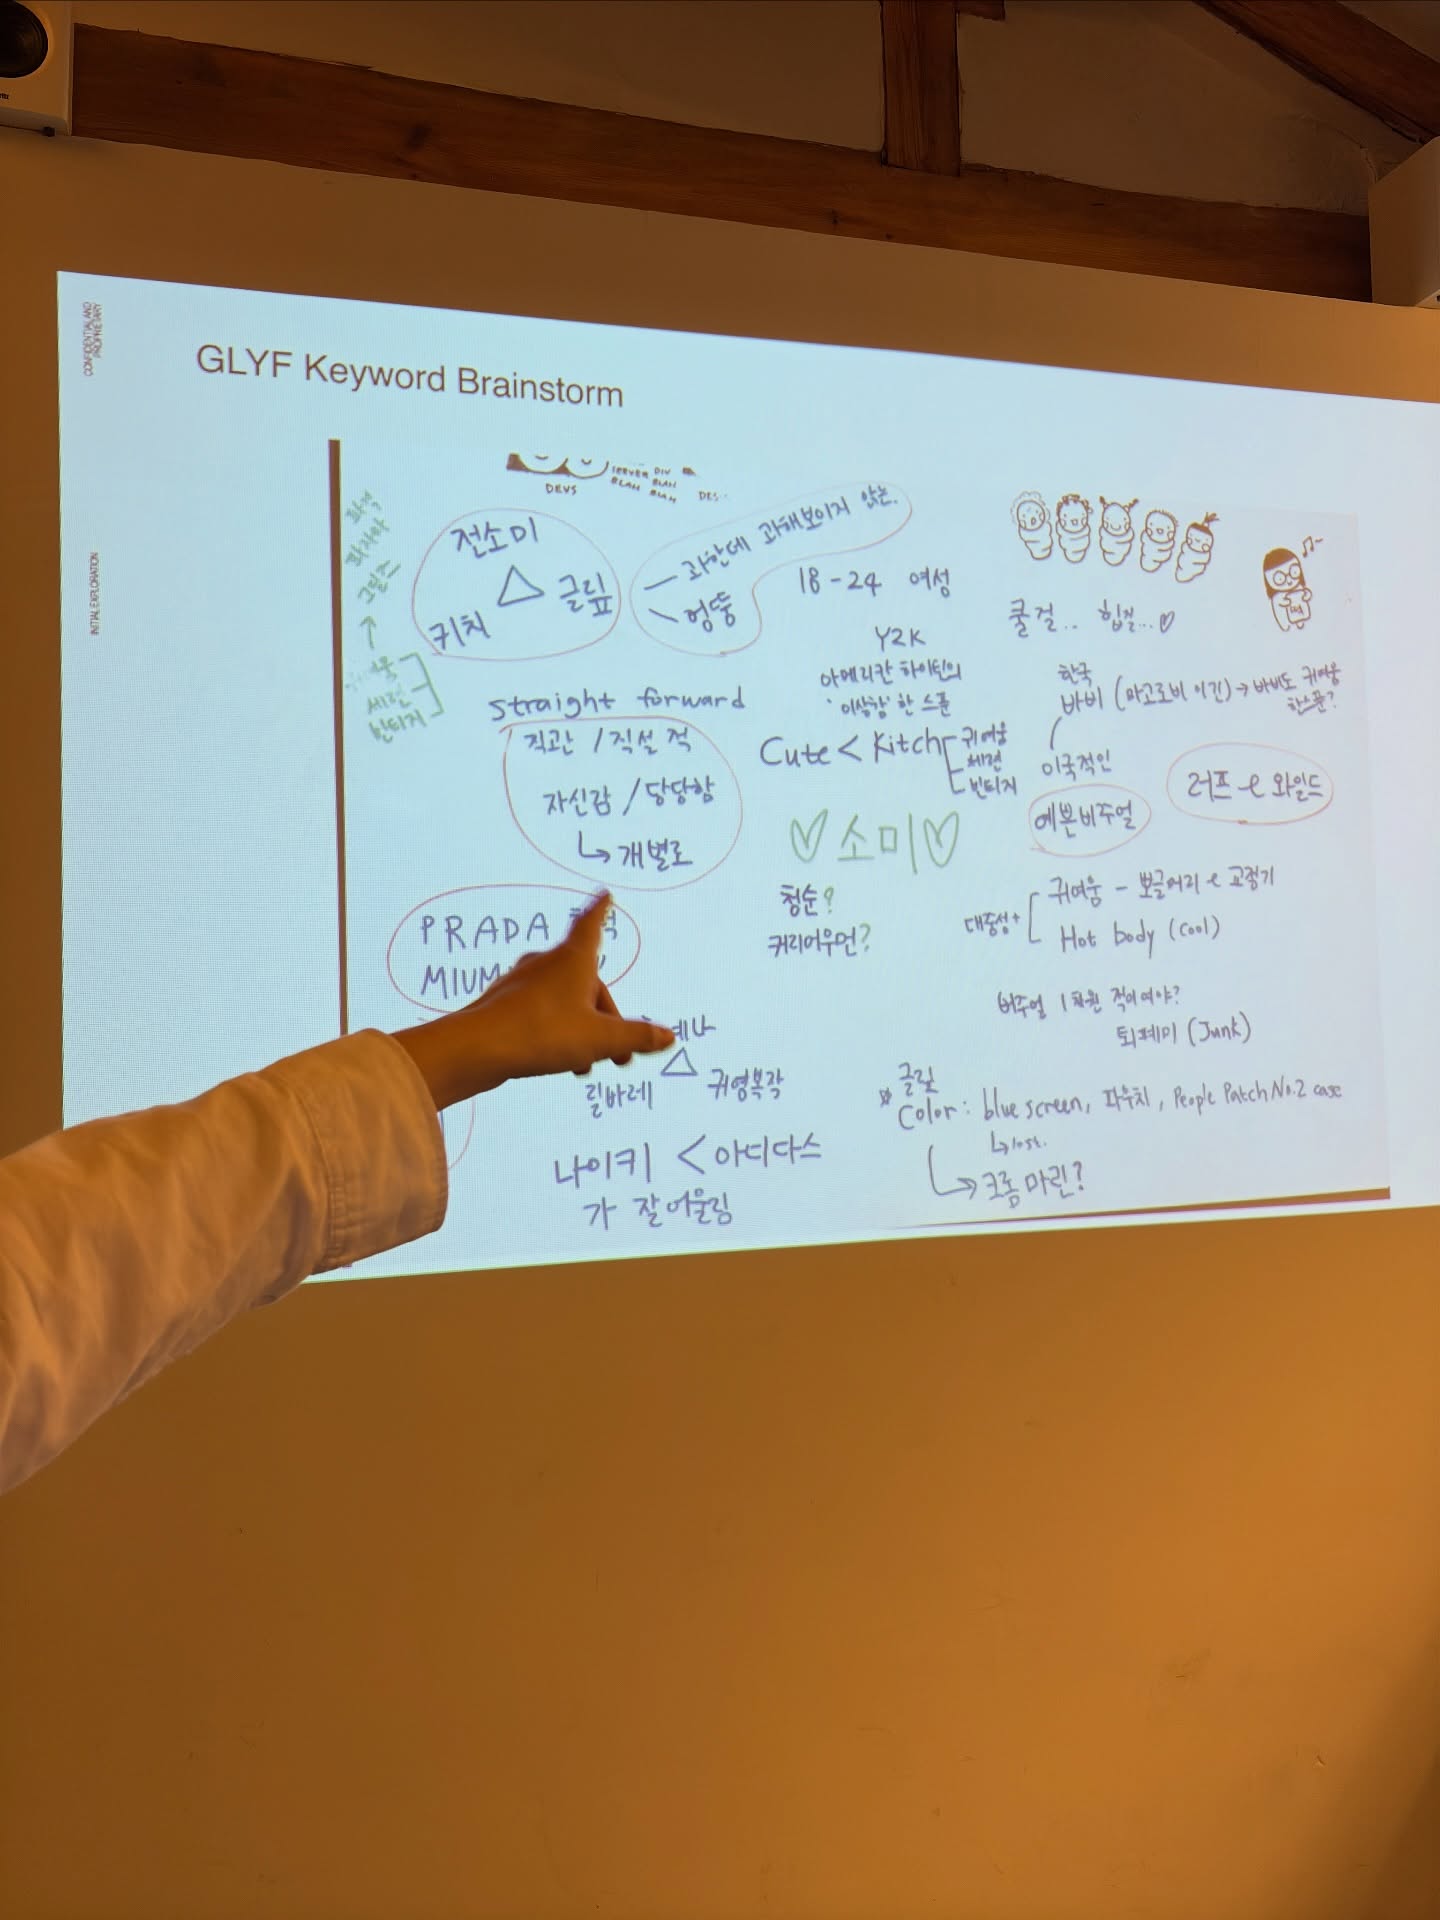 CONFIDENTIAL AND
PROPRIETARY
INITIAL EXPLORATION
GLYF Keyword Brainstorm
DEVS
SERVER DIV
BLAH BLAH
BLAH BLAH
DES
전소미
키치
글맆
과한데 과해보이지 않는.
엉뚱
세련
빈티지
straight forward
직관 / 직설적
자신감 / 당당함
↳ 개별로
PRADA
MIUM
릴바레
귀영복각
나이키 < 아디다스
가 잘 어울림
18-24 여성
Y2K
아메리칸 하이틴의
'이상함' 한 스푼
Cute < Kitch
귀여움
세련
빈티지
♡소미♡
청순?
커리어우먼?
쿨걸.. 힙걸...♡
한국
바비 (마고로비 이긴) → 바비도 귀여움
한스푼?
이국적인
예쁜비주얼
러프 & 와일드
대중성+
귀여움 - 뽀글머리 & 교정기
Hot body (cool)
비주얼
퇴폐미 (Junk)
글맆
Color: blue screen, 파우치, People Patch No.2 case
크롬 마린?